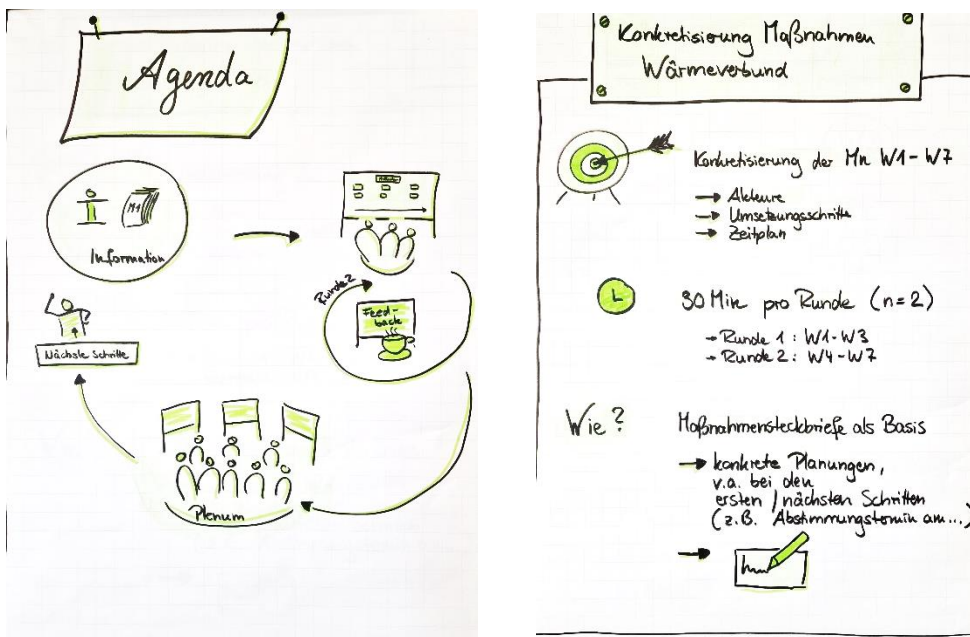 Agenda
M1
Information
Runde 2
Feed-
back
Nächste Schritte
Plenum
Konkretisierung Maßnahmen
Wärmeverbund
Konkretisierung der Mn W1-W7
→ Akteure
→ Umsetzungsschritte
→ Zeitplan
30 Min pro Runde (n=2)
→ Runde 1: W1-W3
→ Runde 2: W4-W7
Wie?
Maßnahmensteckbriefe als Basis
→ konkrete Planungen,
v.a. bei den
ersten / nächsten Schritten
(z.B. Abstimmungstermin am...)